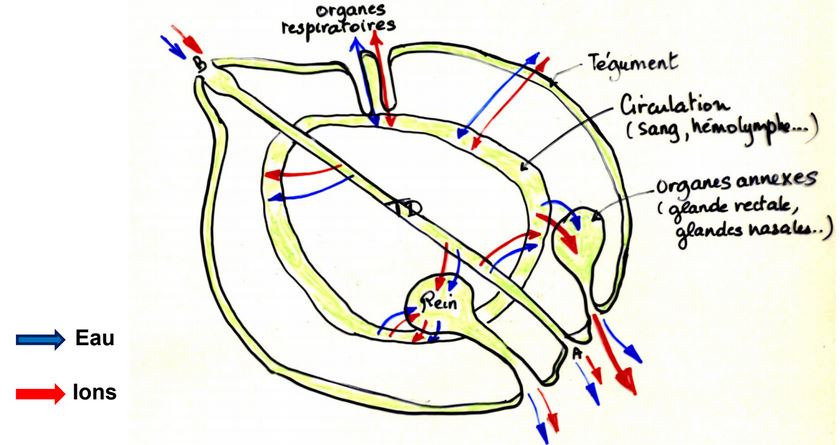 Organes
respiratoires
B
Tégument
Circulation
(sang, hémolymphe...)
Organes annexes
(glande rectale,
glandes nasales..)
TD
Rein
A
Eau
Ions